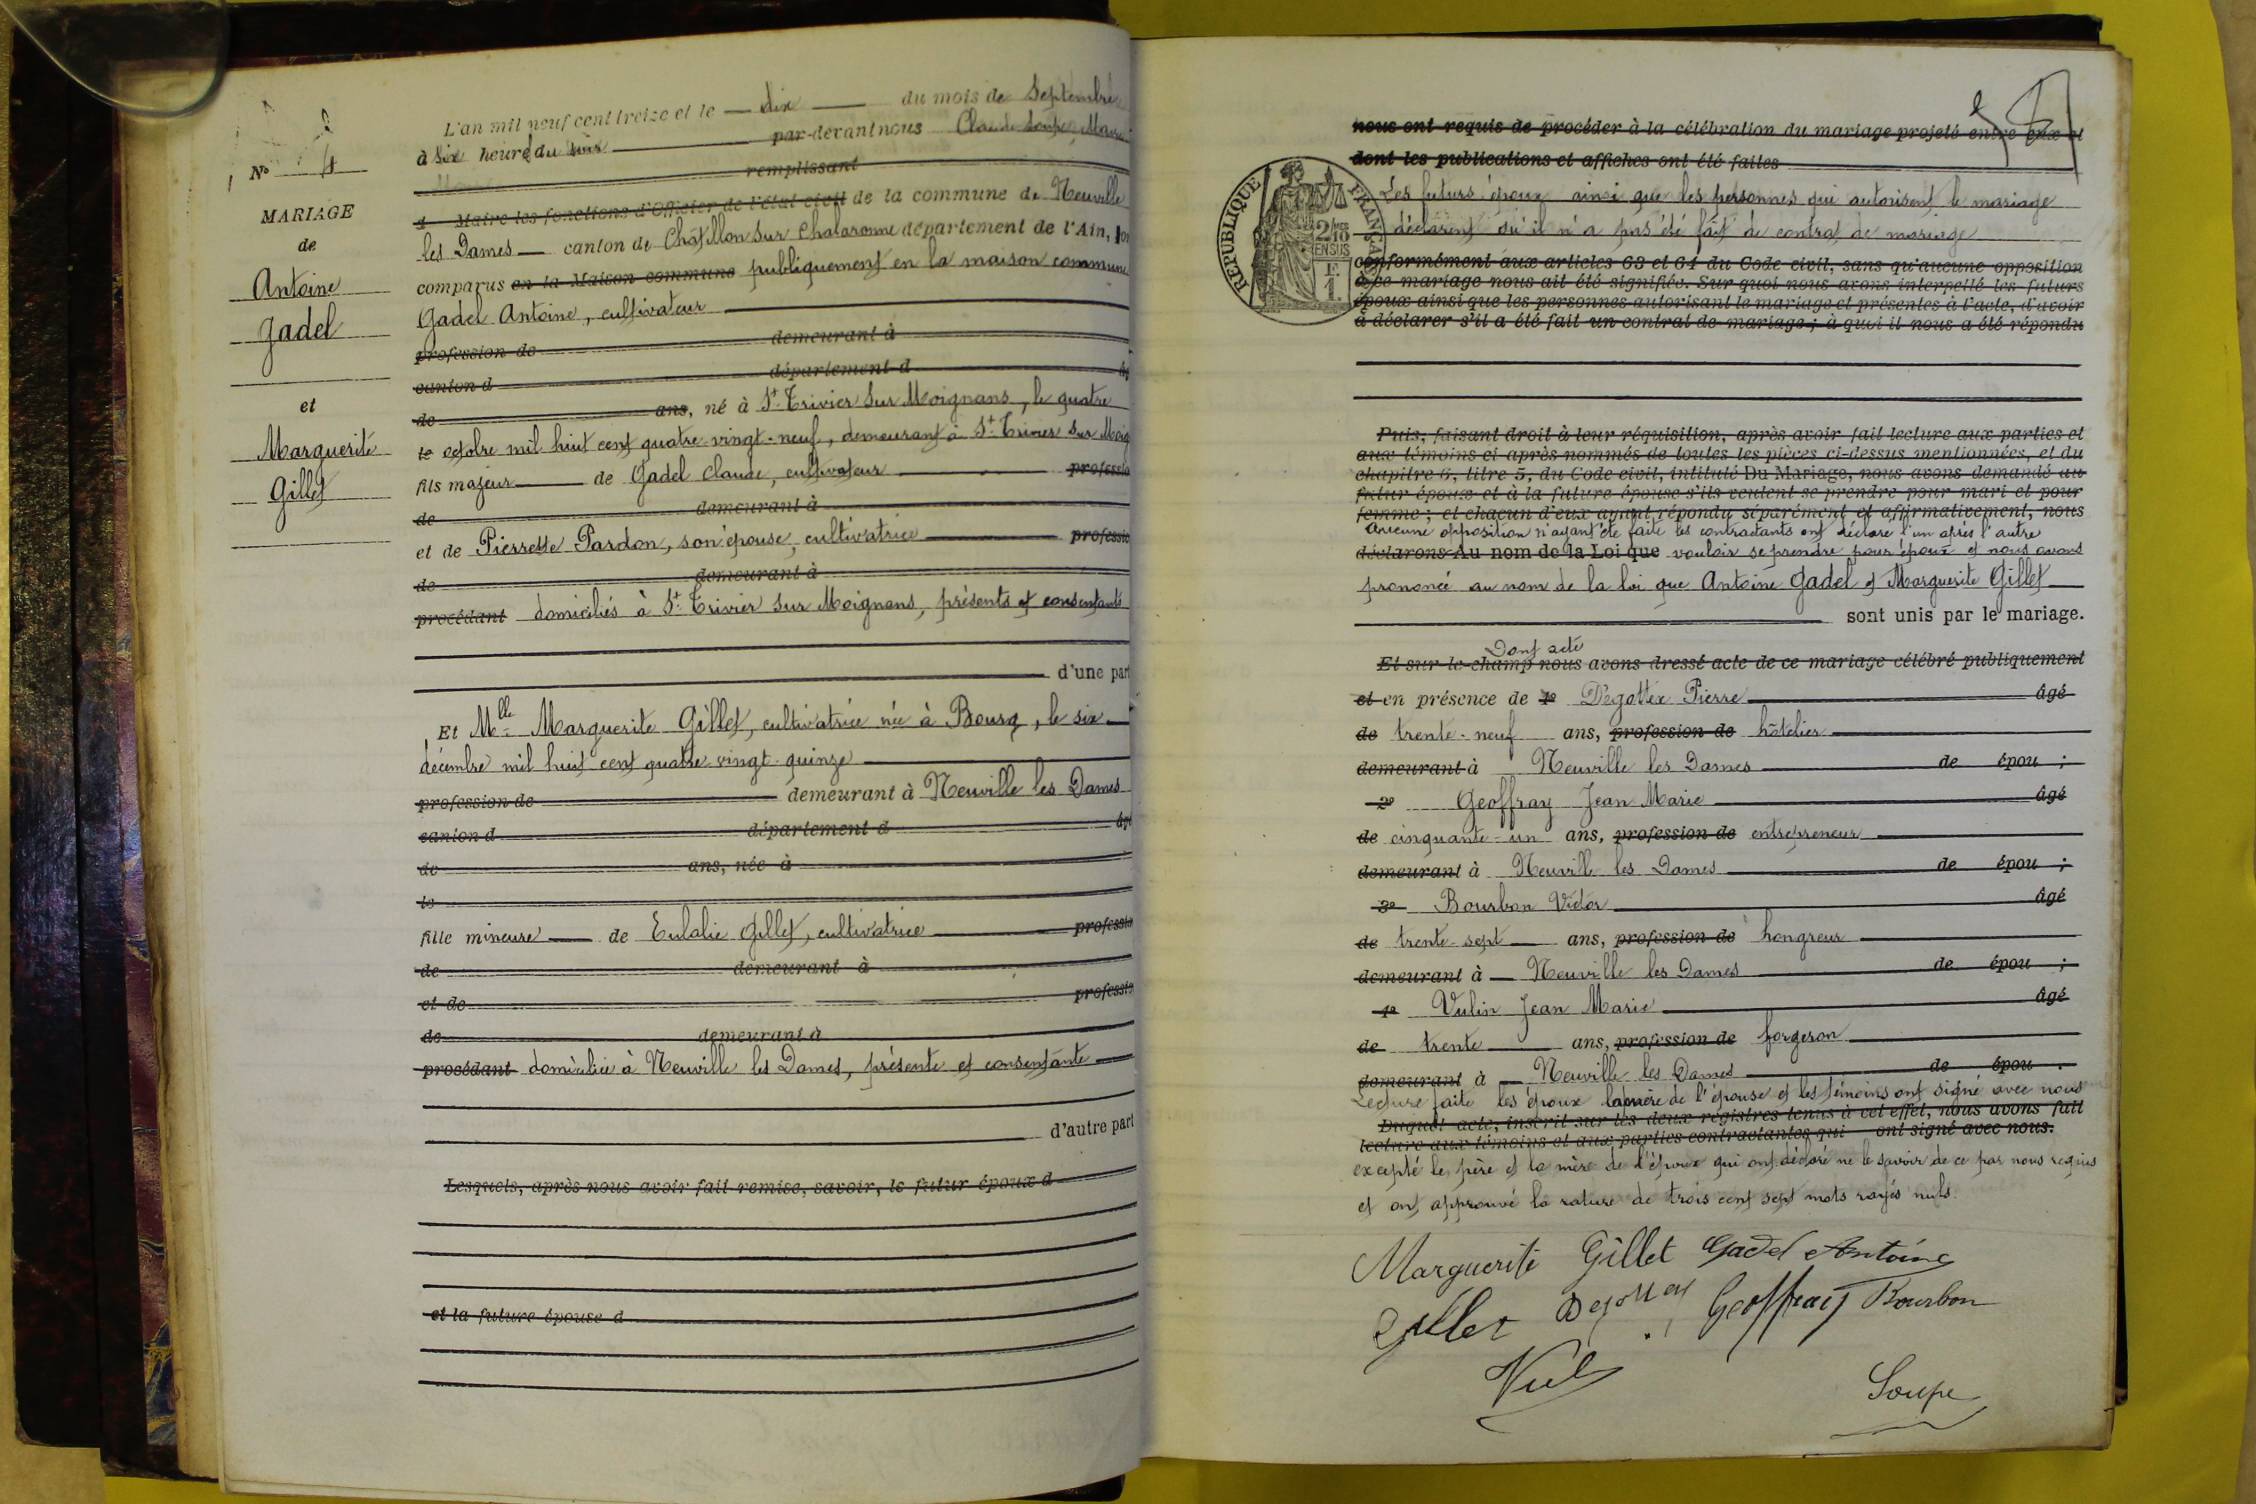 L'an mil neuf cent treize et le — dix — du mois de Septembre
à six heures du soir par-devant nous Claude Soupe, Maire
remplissant
d Maire les fonctions d'Officier de l'état civil de la commune de Neuville
les Dames — canton de Châtillon sur Chalaronne département de l'Ain,
comparus en la Maison commune publiquement en la maison commune
Gadel Antoine, cultivateur
profession de demeurant à
canton d département d
de ans, né à St Trivier sur Moignans, le quatre
le octobre mil huit cent quatre-vingt-neuf, demeurant à St Trivier sur Moig
fils majeur de Gadel Claude, cultivateur professio
de demeurant à
et de Pierrette Pardon, son épouse, cultivatrice professio
de demeurant à
procédant domiciliés à St Trivier sur Moignans, présents et consentants
d'une part
Et Mlle Marguerite Gillet, cultivatrice née à Bourg, le six
décembre mil huit cent quatre vingt quinze
profession de demeurant à Neuville les Dames
canton d département d âgé
de ans, née à
le
fille mineure — de Eulalie Gillet, cultivatrice professio
de demeurant à
et de professio
de demeurant à
procédant domiciliée à Neuville les Dames, présente et consentante
d'autre part
Lesquels, après nous avoir fait remise, savoir, le futur époux d
et la future épouse d
No 4
MARIAGE
de
Antoine
Gadel
et
Marguerite
Gillet
nous ont requis de procéder à la célébration du mariage projeté entre eux et
dont les publications et affiches ont été faites
RÉPUBLIQUE FRANÇAISE
2/10 EN SUS
F.
1.
Les futurs époux ainsi que les personnes qui autorisent le mariage
déclarent qu'il n'a pas été fait de contrat de mariage
conformément aux articles 63 et 64 du Code civil, sans qu'aucune opposition
à ce mariage nous ait été signifiée. Sur quoi nous avons interpellé les futurs
époux ainsi que les personnes autorisant le mariage et présentes à l'acte, d'avoir
à déclarer s'il a été fait un contrat de mariage; à quoi il nous a été répondu
Puis, faisant droit à leur réquisition, après avoir fait lecture aux parties et
aux témoins ci-après nommés de toutes les pièces ci-dessus mentionnées, et du
chapitre 6, titre 5, du Code civil, intitulé Du Mariage, nous avons demandé au
futur époux et à la future épouse s'ils veulent se prendre pour mari et pour
femme; et chacun d'eux ayant répondu séparément et affirmativement, nous
Aucune opposition n'ayant été faite les contractants ont déclaré l'un après l'autre
déclarons Au nom de la Loi que vouloir se prendre pour époux et nous avons
prononcé au nom de la loi que Antoine Gadel et Marguerite Gillet
sont unis par le mariage.
Dont acte
Et sur le champ nous avons dressé acte de ce mariage célébré publiquement
et en présence de 1o Degottex Pierre âgé
de trente-neuf ans, profession de hôtelier
demeurant à Neuville les Dames de épou ;
2o Geoffray Jean Marie âgé
de cinquante-un ans, profession de entrepreneur
demeurant à Neuville les Dames de épou ;
3o Bourbon Victor âgé
de trente-sept ans, profession de hongreur
demeurant à — Neuville les Dames de épou ;
4o Vulin Jean Marie âgé
de trente ans, profession de forgeron
demeurant à — Neuville les Dames de épou .
Lecture faite les époux la mère de l'épouse et les témoins ont signé avec nous
Duquel acte, inscrit sur les deux registres tenus à cet effet, nous avons fait
lecture aux témoins et aux parties contractantes qui ont signé avec nous.
excepté le père et la mère de l'époux qui ont déclaré ne le savoir de ce par nous requis
et ont approuvé la rature de trois cent sept mots rayés nuls.
Marguerite Gillet Gadel Antoine
Gillet Degottex Geoffray Bourbon
Soupe